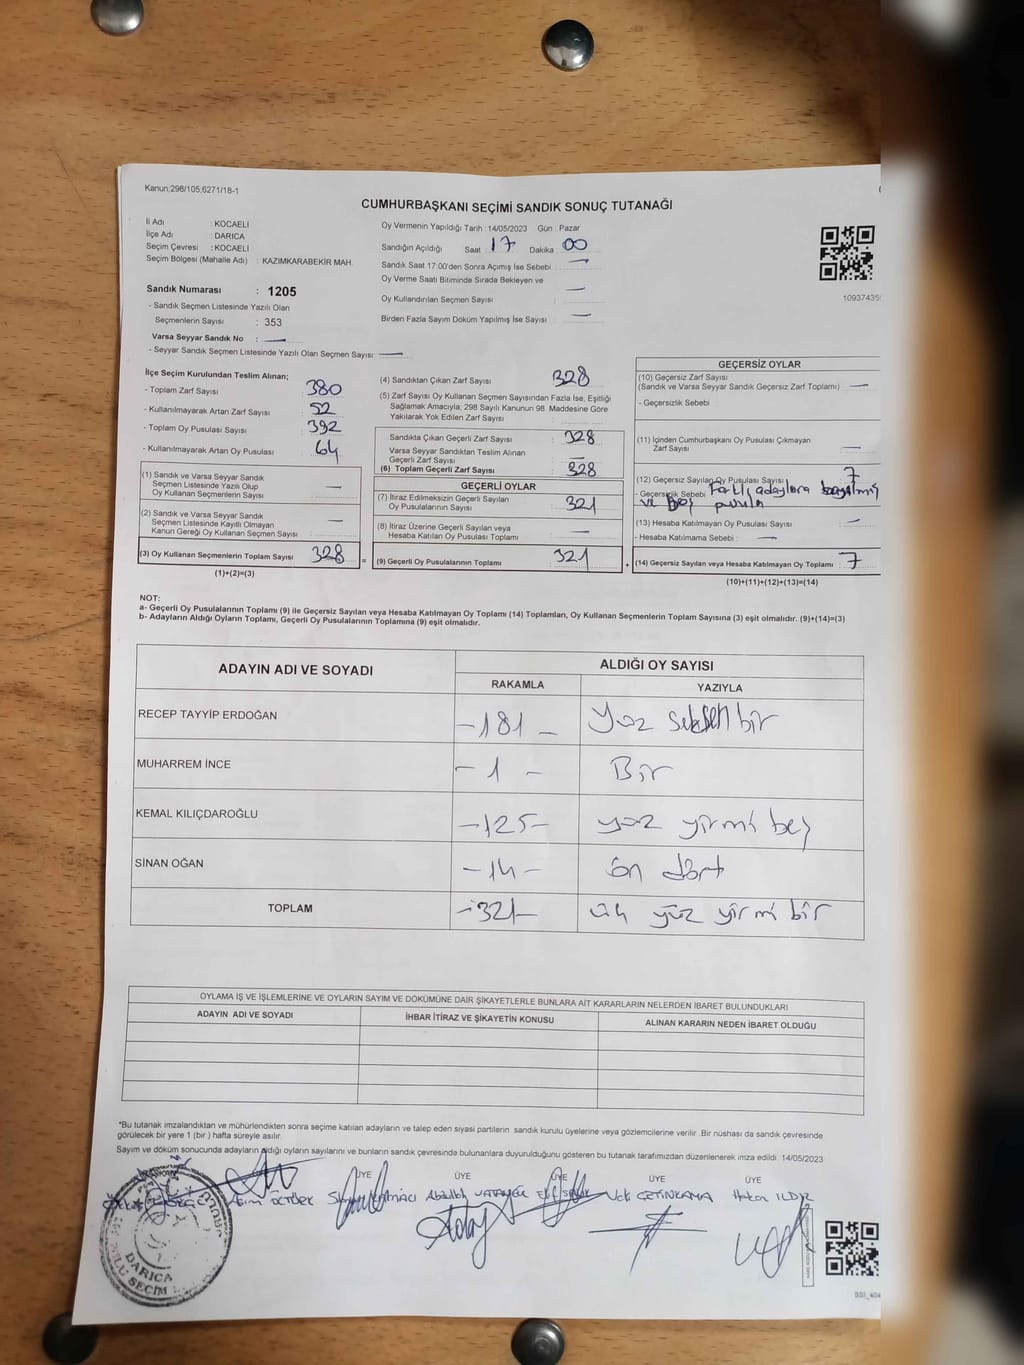 Kanun;298/105;6271/18-1
CUMHURBAŞKANI SEÇİMİ SANDIK SONUÇ TUTANAĞI
İl Adı : KOCAELİ
İlçe Adı : DARICA
Seçim Çevresi : KOCAELİ
Seçim Bölgesi (Mahalle Adı) : KAZIMKARABEKİR MAH.
Sandık Numarası : 1205
- Sandık Seçmen Listesinde Yazılı Olan
Seçmenlerin Sayısı : 353
Varsa Seyyar Sandık No : —
- Seyyar Sandık Seçmen Listesinde Yazılı Olan Seçmen Sayısı: —
Oy Vermenin Yapıldığı Tarih :14/05/2023 Gün : Pazar
Sandığın Açıldığı Saat : 17 Dakika : 00
Sandık Saat 17:00'den Sonra Açımış İse Sebebi : —
Oy Verme Saati Bitiminde Sırada Bekleyen ve
Oy Kullandırılan Seçmen Sayısı : —
Birden Fazla Sayım Döküm Yapılmış İse Sayısı : —
10937435
İlçe Seçim Kurulundan Teslim Alınan;
- Toplam Zarf Sayısı : 380
- Kullanılmayarak Artan Zarf Sayısı : 52
- Toplam Oy Pusulası Sayısı : 392
- Kullanılmayarak Artan Oy Pusulası : 64
(1) Sandık ve Varsa Seyyar Sandık
Seçmen Listesinde Yazılı Olup
Oy Kullanan Seçmenlerin Sayısı : —
(2) Sandık ve Varsa Seyyar Sandık
Seçmen Listesinde Kayıtlı Olmayan
Kanun Gereği Oy Kullanan Seçmen Sayısı : —
(3) Oy Kullanan Seçmenlerin Toplam Sayısı : 328 =
(1)+(2)=(3)
(4) Sandıktan Çıkan Zarf Sayısı : 328
(5) Zarf Sayısı Oy Kullanan Seçmen Sayısından Fazla İse, Eşitliği
Sağlamak Amacıyla; 298 Sayılı Kanunun 98. Maddesine Göre
Yakılarak Yok Edilen Zarf Sayısı :
Sandıkta Çıkan Geçerli Zarf Sayısı : 328
Varsa Seyyar Sandıktan Teslim Alınan
Geçerli Zarf Sayısı : —
(6) Toplam Geçerli Zarf Sayısı : 328
GEÇERLİ OYLAR
(7) İtiraz Edilmeksizin Geçerli Sayılan
Oy Pusulalarının Sayısı : 321
(8) İtiraz Üzerine Geçerli Sayılan veya
Hesaba Katılan Oy Pusulası Toplamı : —
(9) Geçerli Oy Pusulalarının Toplamı : 321 +
GEÇERSİZ OYLAR
(10) Geçersiz Zarf Sayısı
(Sandık ve Varsa Seyyar Sandık Geçersiz Zarf Toplamı) : —
- Geçersizlik Sebebi :
(11) İçinden Cumhurbaşkanı Oy Pusulası Çıkmayan
Zarf Sayısı : —
(12) Geçersiz Sayılan Oy Pusulası Sayısı : 7
- Geçersizlik Sebebi : Farklı adaylara
ve Boş pusula
(13) Hesaba Katılmayan Oy Pusulası Sayısı : —
- Hesaba Katılmama Sebebi : —
(14) Geçersiz Sayılan veya Hesaba Katılmayan Oy Toplamı : 7
(10)+(11)+(12)+(13)=(14)
NOT:
a- Geçerli Oy Pusulalarının Toplamı (9) ile Geçersiz Sayılan veya Hesaba Katılmayan Oy Toplamı (14) Toplamları, Oy Kullanan Seçmenlerin Toplam Sayısına (3) eşit olmalıdır. (9)+(14)=(3)
b- Adayların Aldığı Oyların Toplamı, Geçerli Oy Pusulalarının Toplamına (9) eşit olmalıdır.
ADAYIN ADI VE SOYADI ALDIĞI OY SAYISI
RAKAMLA YAZIYLA
RECEP TAYYİP ERDOĞAN -181- yüz seksen bir
MUHARREM İNCE -1- Bir
KEMAL KILIÇDAROĞLU -125- yüz yirmi beş
SİNAN OĞAN -14- on dört
TOPLAM -321- üç yüz yirmi bir
OYLAMA İŞ VE İŞLEMLERİNE VE OYLARIN SAYIM VE DÖKÜMÜNE DAİR ŞİKAYETLERLE BUNLARA AİT KARARLARIN NELERDEN İBARET BULUNDUKLARI
ADAYIN ADI VE SOYADI İHBAR İTİRAZ VE ŞİKAYETİN KONUSU ALINAN KARARIN NEDEN İBARET OLDUĞU
*Bu tutanak imzalandıktan ve mühürlendikten sonra seçime katılan adayların ve talep eden siyasi partilerin sandık kurulu üyelerine veya gözlemcilerine verilir. Bir nüshası da sandık çevresinde
görülecek bir yere 1 (bir ) hafta süreyle asılır.
Sayım ve döküm sonucunda adayların aldığı oyların sayılarını ve bunların sandık çevresinde bulunanlara duyurulduğunu gösteren bu tutanak tarafımızdan düzenlenerek imza edildi. 14/05/2023
ÜYE ÜYE ÜYE ÜYE ÜYE
ÇETİNKAYA Hakan
DARICA
SEÇİM